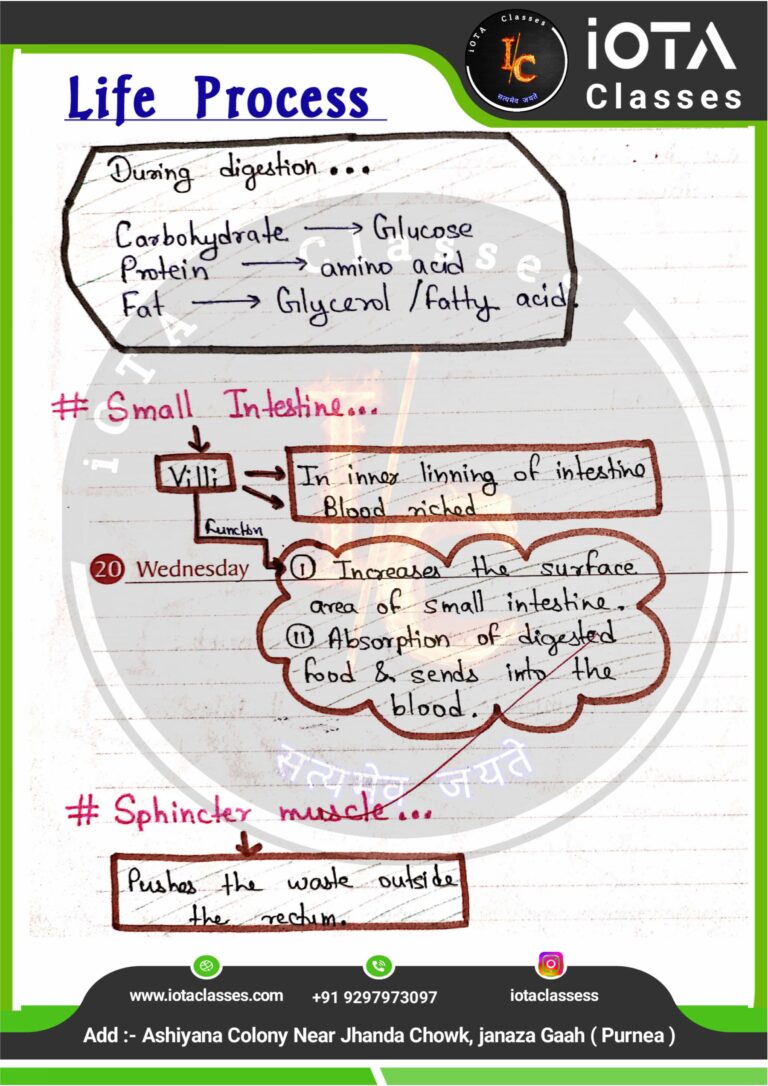 iOTA Classes
I/C
सत्यमेव जयते
iOTA
Classes
Life Process
During digestion...
Carbohydrate → Glucose
Protein → amino acid
Fat → Glycerol / fatty acid.
iOTA Classes
# Small Intestine...
Villi
In inner linning of intestine
Blood riched
function
20 Wednesday
(I) Increases the surface
area of small intestine.
(II) Absorption of digested
food & sends into the
blood.
सत्यमेव जयते
# Sphincter muscle...
Pushes the waste outside
the rectum.
www.iotaclasses.com
+91 9297973097
iotaclassess
Add :- Ashiyana Colony Near Jhanda Chowk, janaza Gaah ( Purnea )